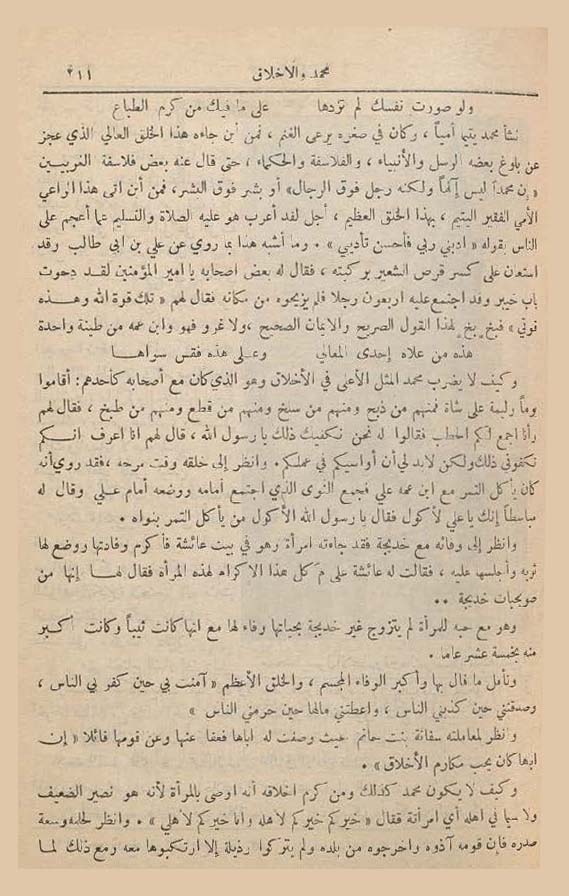 محمد والاخلاق ٣١١
ولو صورت نفسك لم تزدها على ما فيك من كرم الطباع
نشأ محمد يتيماً أمياً ، وكان في صغره يرعى الغنم ، فمن أين جاءه هذا الخلق العالي الذي عجز
عن بلوغ بعضه الرسل والأنبياء ، والفلاسفة والحكماء ، حتى قال عنه بعض فلاسفة الغربيين
« إن محمداً ليس إلهاً ولكنه رجل فوق الرجال» أو بشر فوق البشر، فمن أين اتى هذا الراعي
الأمي الفقير اليتيم ، بهذا الخلق العظيم ، أجل لقد أعرب هو عليه الصلاة والتسليم عما أعجم على
الناس بقوله « ادبني ربي فأحسن تأديبي » . وما أشبه هذا بما روي عن علي بن ابي طالب وقد
استعان على كسر قرص الشعير بركبته ، فقال له بعض اصحابه يا امير المؤمنين لقد دحوت
باب خيبر وقد اجتمع عليه اربعون رجلا فلم يزيحوه من مكانه فقال لهم « تلك قوة الله وهذه
قوتي » فبخ بخ لهذا القول الصريح والايمان الصحيح ، ولا غرو فهو وابن عمه من طينة واحدة
هذه من علاه إحدى المعالي وعلى هذه فقس سواها
وكيف لا يضرب محمد المثل الأعلى في الأخلاق وهو الذي كان مع أصحابه كأحدهم: أقاموا
وماً رليمة على شاة فمنهم من ذبح ومنهم من سلخ ومنهم من قطع ومنهم من طبخ ، فقال لهم
وأنا اجمع لكم الحطب فقالوا له نحن نكفيك ذلك يا رسول الله ، قال لهم انا اعرف انكم
تكفوني ذلك ولكن لابد لي أن أواسيكم في عملكم . وانظر إلى خلقه وقت مرحه ، فقد روي أنه
كان يأكل التمر مع ابن عمه علي فجمع النوى الذي اجتمع أمامه ووضعه أمام علي وقال له
مباسطاً إنك يا علي لأكول فقال يا رسول الله الأكول من يأكل التمر بنواه .
وانظر إلى وفائه مع خديجة فقد جاءته امرأة وهو في بيت عائشة فأكرم وفادتها ووضع لها
ثوبه وأجلسها عليه ، فقالت له عائشة على مَ كل هذا الاكرام لهذه المرأة فقال لها إنها من
صويحبات خديجة ..
وهو مع حبه للمرأة لم يتزوج غير خديجة بحياتها وفاء لها مع انها كانت ثيباً وكانت أكبر
منه بخمسة عشر عاما .
وتأمل ما قال بها وأكبر الوفاء المجسم ، والخلق الأعظم « آمنت بي حين كفر بي الناس ،
وصدقتني حين كذبني الناس ، واعطتني مالها حين حرمني الناس »
وانظر لمعاملته سفانة بنت حاتم حيث وصفت له اباها فعفا عنها وعن قومها قائلا « إن
ابها كان يحب مكارم الأخلاق » .
وكيف لا يكون محمد كذلك ومن كرم اخلاقه أنه اوصى بالمرأة لأنه هو نصير الضعيف
ولا سيما في اهله أي امرأته فقال « خيركم خيركم لأهله وأنا خيركم لأهلي » . وانظر لحلمه وسعة
صدره فإن قومه آذوه واخرجوه من بلده ولم يتركوا رذيلة إلا ارتكبوها معه ومع ذلك لما